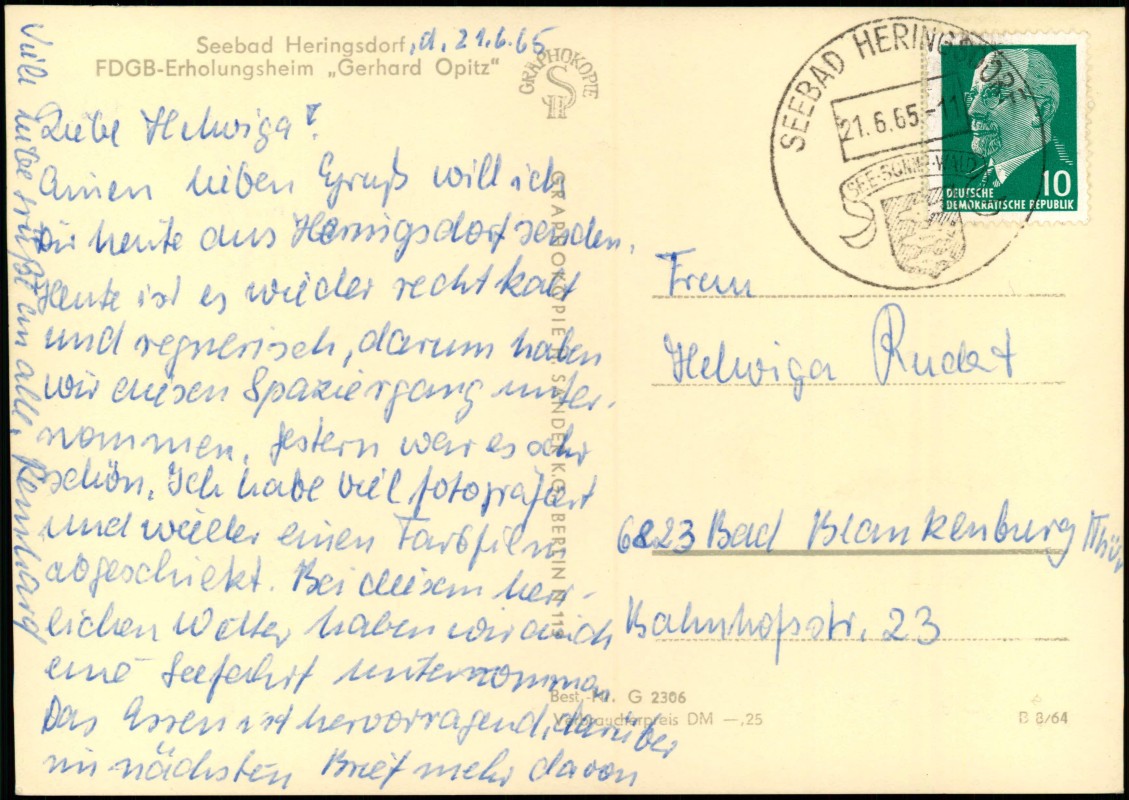 Seebad Heringsdorf, d. 21.6.65
FDGB-Erholungsheim „Gerhard Opitz“
Liebe Helwiga!
Einen lieben Gruß will ich
Dir heute aus Heringsdorf senden.
Heute ist es wieder recht kalt
und regnerisch, darum haben
wir einen Spaziergang unter-
nommen. Gestern war es sehr
schön. Ich habe viel fotografiert
und wieder einen Farbfilm
abgeschickt. Bei diesem herr-
lichen Wetter haben wir auch
eine Seefahrt unternommen.
Das Essen ist hervorragend, darüber
im nächsten Brief mehr davon
Viele liebe Grüße an alle, Reinhard
GRAPHOKOPIE
SH
GRAPHOKOPIE H. SANDER K.G. BERLIN N 113
SEEBAD HERINGSDORF
21.6.65.-11
SEE-SONNE-WALD
10
DEUTSCHE
DEMOKRATISCHE REPUBLIK
Frau
Helwiga Rudat
6823 Bad Blankenburg Thür
Bahnhofsstr. 23
Best.-Nr. G 2306
Verbraucherpreis DM —,25
B 8/64